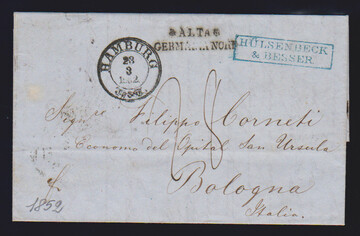 ALTA
GERMANIA NORD
HÜLSENBECK
& BESSER
HAMBURG
23
3
Filippo Corneti
Economo del Ospital San Ursula
Bologna
Italia.
1852